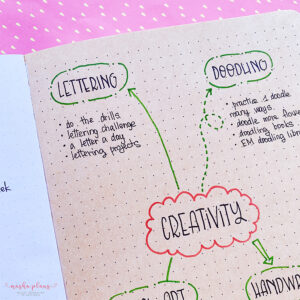 LETTERING
• do the drills
• lettering challenge
• a letter a day
• lettering projects
DOODLING
• practice & doodle
many ways
• doodle more flowe
• doodling books
• EM doodling libr
CREATIVITY
ART
HANDWR
masha plans